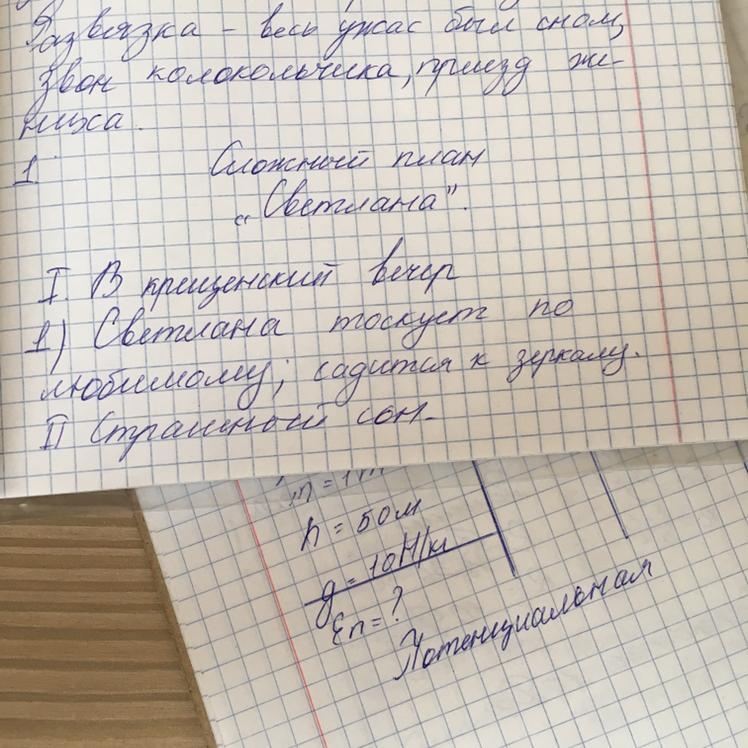 Развязка - весь ужас был сном,
звон колокольчика, приезд же-
ниха.
1
Сложный план
„Светлана".
I. В крещенский вечер
1) Светлана тоскует по
любимому; садится к зеркалу.
II Страшный сон.
h = 50м
g = 10Н/кг
Eп = ?
Потенциальная